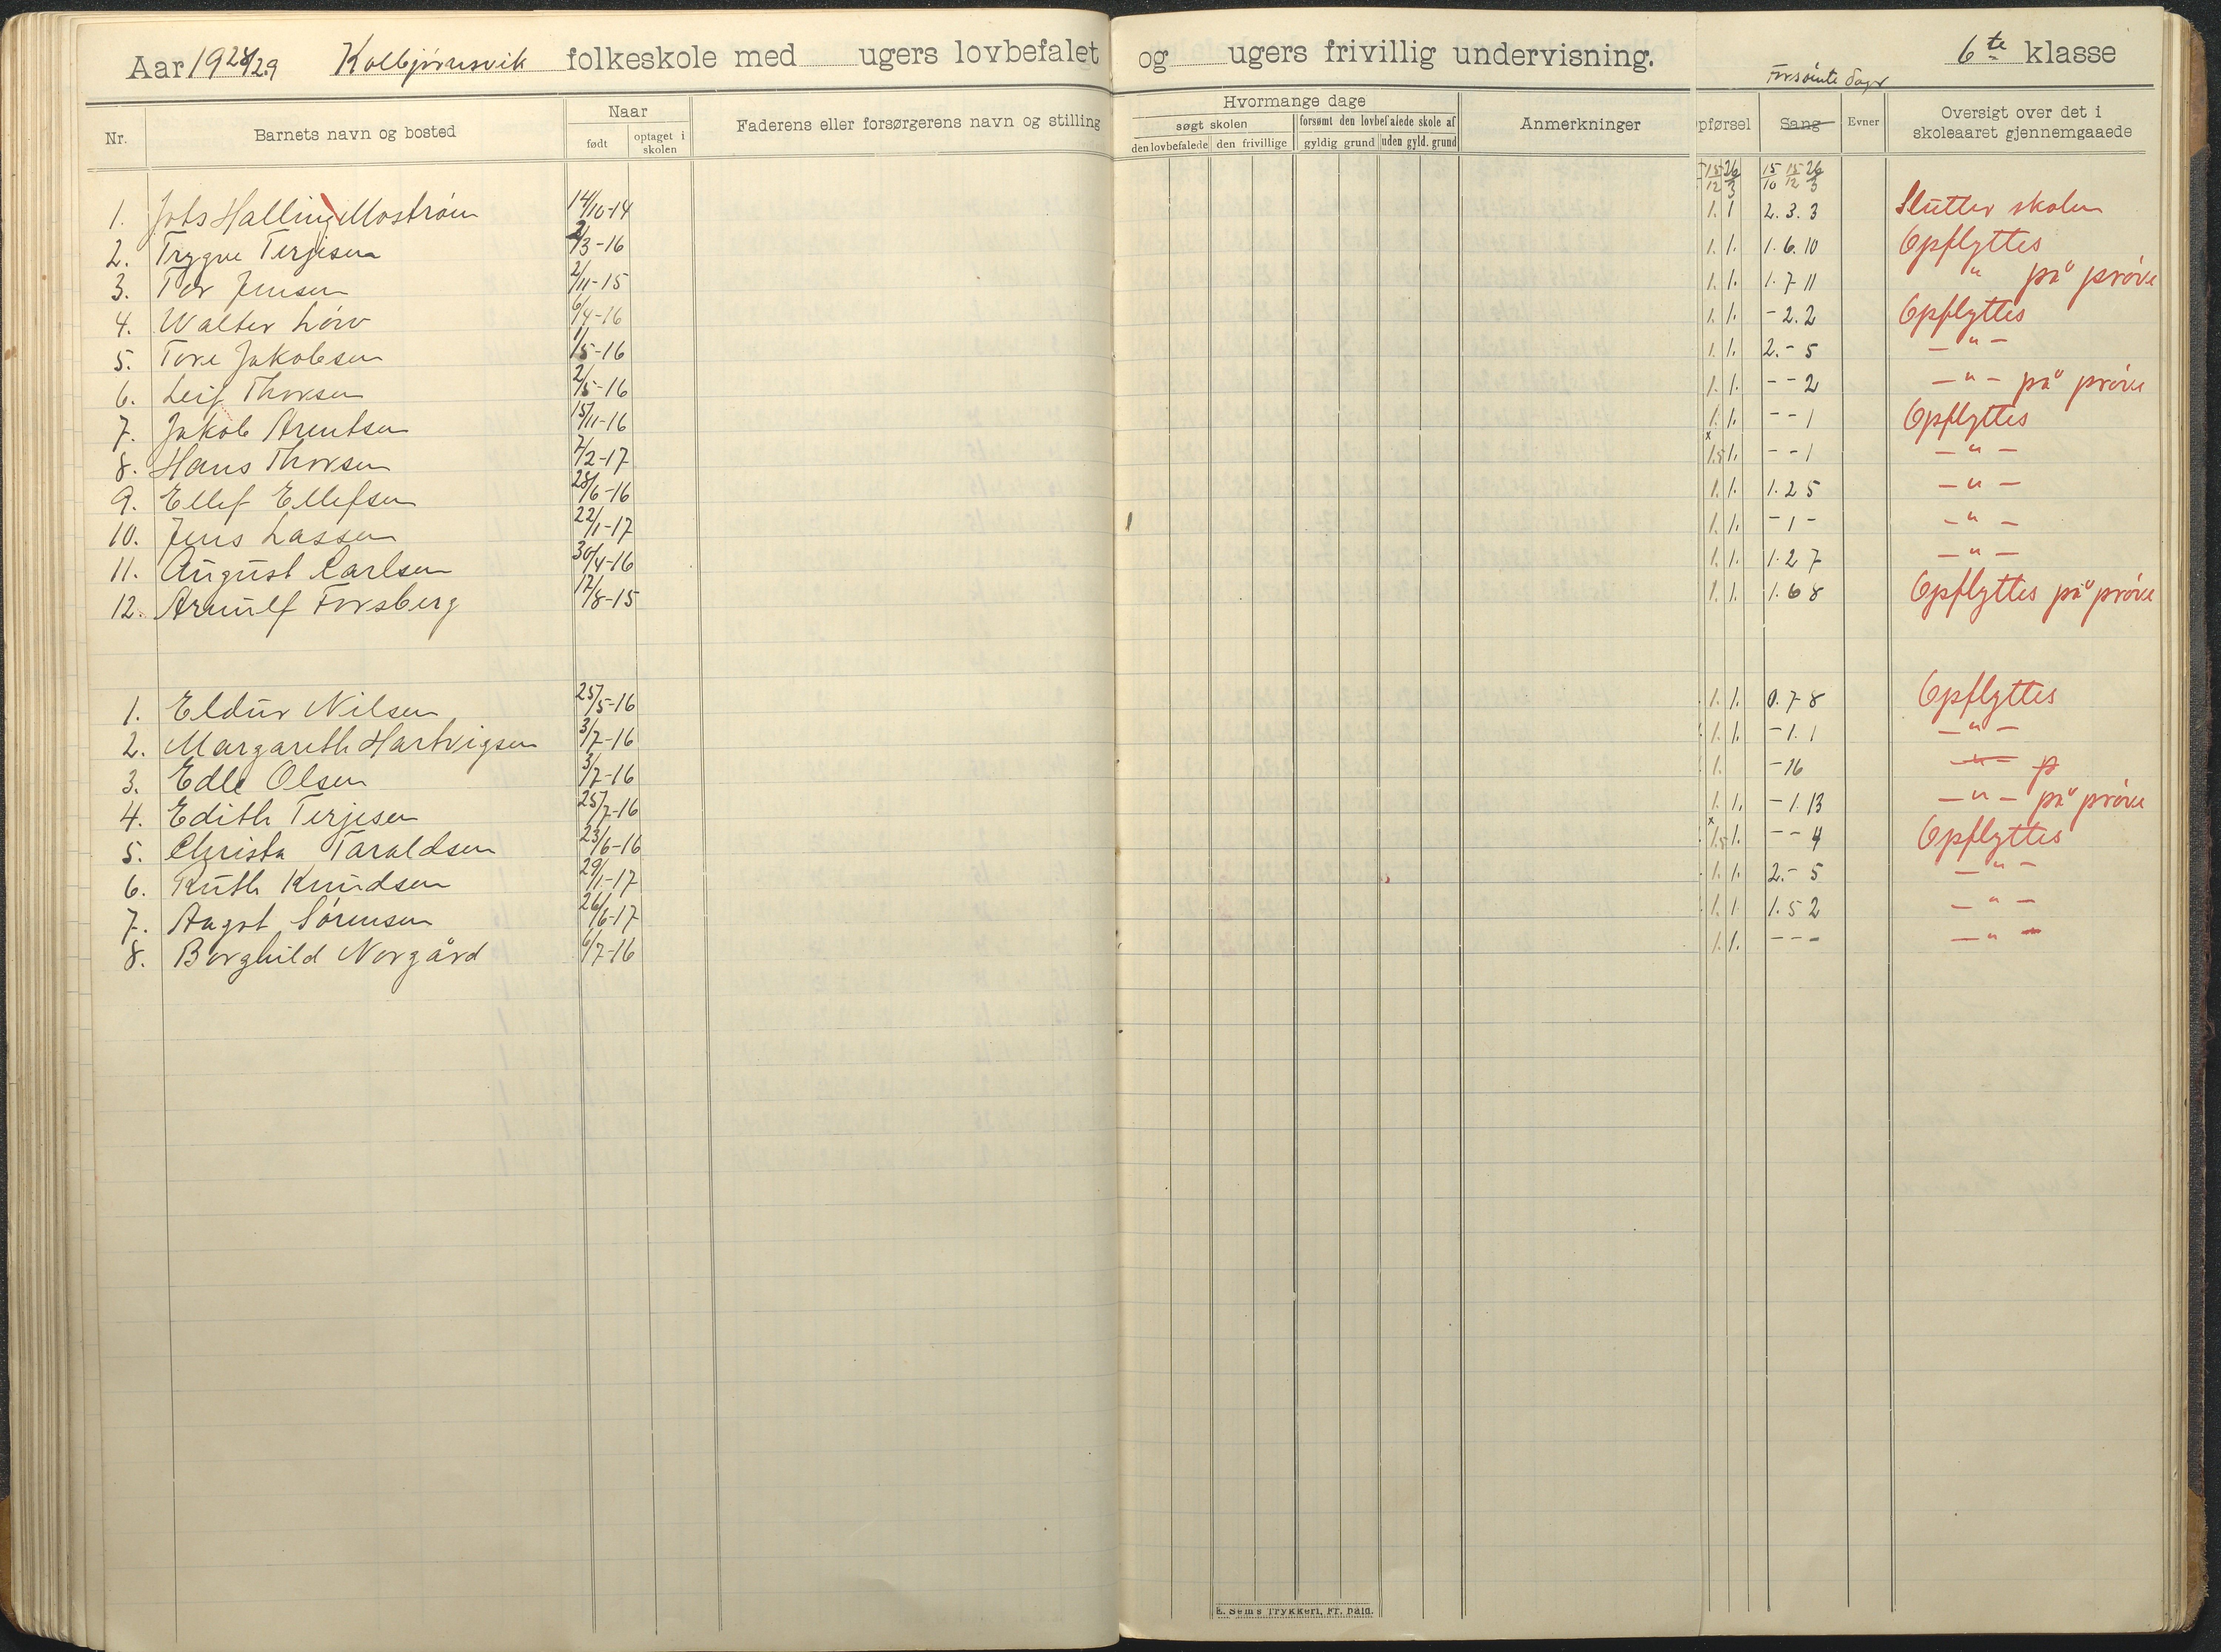 Aar 1928/29 Kolbjørnsvik folkeskole med ugers lovbefalet og ugers frivillig undervisning. 6te klasse
Forsømte dager
Nr. Barnets navn og bosted Naar Faderens eller forsørgerens navn og stilling Hvormange dage Anmerkninger pførsel Sang Evner Oversigt over det i skoleaaret gjennemgaaede
født optaget i skolen søgt skolen forsømt den lovbefalede skole af
den lovbefalede den frivillige gyldig grund uden gyld. grund
15/12 26/3 15/10 15/12 26/3
1. Halling Mostrøm 14/10-14 1. 1 2. 3. 3 Slutter skolen
2. Trygve Terjesen 2/3-16 1. 1. 1. 6. 10 Opflyttes
3. Tor Jensen 2/11-15 1. 1. 1. 7 11 " på prøve
4. Walter Løw 6/4-16 1. 1. - 2. 2 Opflyttes
5. Tore Jakobsen 1/5-16 1. 1. 2. - 5 - " -
6. Leif Thorsen 2/5-16 1. 1. - - 2 - " - på prøve
7. Jakob Arentsen 15/11-16 1. 1. - - 1 Opflyttes
8. Hans Thorsen 7/2-17 x 1.5 1. - - 1 - " -
9. Ellef Ellefsen 28/6-16 1. 1. 1. 2 5 - " -
10. Jens Lassen 22/1-17 1. 1. - 1 - - " -
11. August Carlsen 30/4-16 1. 1. 1. 2 7 - " -
12. Arnulf Forsberg 17/8-15 1. 1. 1. 6 8 Opflyttes på prøve
1. Eldur Nilsen 25/5-16 1. 1. 0. 7 8 Opflyttes
2. Margareth Hartvigsen 3/7-16 1. 1. - 1. 1 - " -
3. Edle Olsen 3/7-16 1. - 16 - " - p
4. Edith Terjesen 25/7-16 1. 1. - 1. 13 - " - på prøve
5. Christa Taraldsen 23/6-16 x 1.5 1. - - 4 Opflyttes
6. Ruth Knudsen 29/1-17 1. 1. 2. - 5 - " -
7. Aagot Sørensen 26/6-17 1. 1 1. 5 2 - " -
8. Borghild Norgård 6/7-16 1. 1. - - - - " -
E. Sem's Trykkeri, Fr. hald.